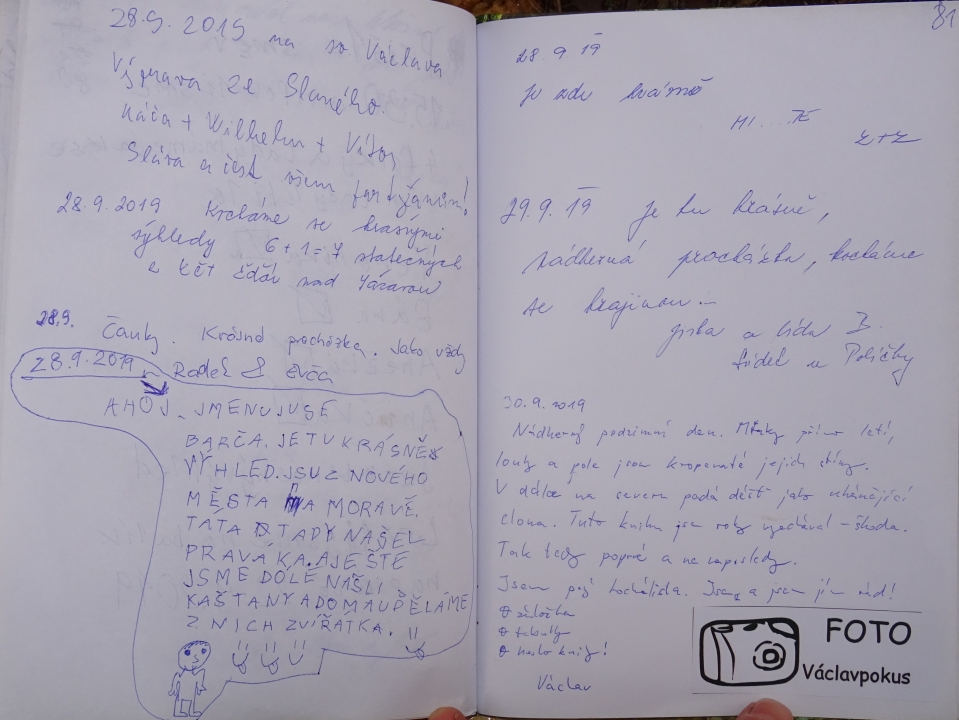 28.9.2019 na sv Václava
Výprava ze Slaného.
Káča + Wilhelm + Viktor
Sláva a čest všem partyzánům!
28.9.2019 Kocháme se krásnými
výhledy 6+1=7 statečných
a kět údolí nad Sázavou
28.9.
Čauky. Krásná procházka. Jako vždy
28.9.2019 Radek & Evča
AHOJ. JMENUJU SE
BARČA. JE TU KRÁSNĚ
VÝHLED. JSU Z NOVÉHO
MĚSTA NA MORAVĚ.
TÁTA TADY NAŠEL
PRAVÁKA. A JEŠTĚ
JSME DOLE NAŠLI
KAŠTANY A DOMA UDĚLÁME
Z NICH ZVÍŘÁTKA.
81
28 9 19
Je zde krásně
MI....TE
Z+Z
29.9.19 je tu krásně,
nádherná procházka, kocháme
se krajinou...
jirka a lída Z.
Sádek u Poličky
30.9.2019
Nádherný podzimní den. Mraky přímo letí,
louky a pole jsou kropenaté jejich stíny.
V dálce na severu padá déšť jako uhánějící
clona. Tuto knihu jsem roky vynechával - škoda.
Tak tedy poprvé a ne naposledy.
Jsem prý kochálista. Jsem a jsem jím rád!
záložka
tabulky
heslo knihy!
Václav
FOTO
Václavpokus